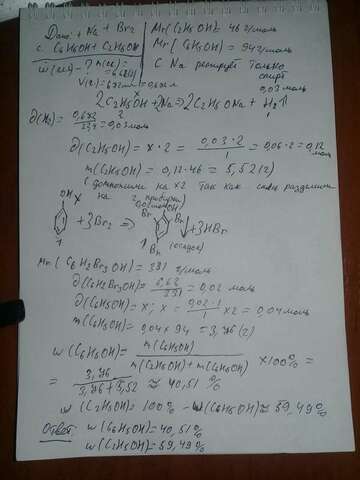 Дано: + Na + Br2
с. C6H5OH + C2H5OH
m(ос) = 6,62(г)
V(г) = 672мл = 0,672л
Mr(C2H5OH) = 46 г/моль
Mr(C6H5OH) = 94 г/моль
С Na реагирует только
спирт
0,03 моль
2C2H5OH + 2Na => 2C2H5ONa + H2↑
∂(H2) = 0,672/22,4 = 0,03 моль
∂(C2H5OH) = x · 2 = 0,03·2/1 = 0,06·2 = 0,12 моль
m(C2H5OH) = 0,12·46 = 5,52(г)
(домножили на x2 так как смесь разделили
на 2 пробирки)
0,02 моль
OH x
OH
+ 3Br2 =>
Br
Br
Br
↓ + 3HBr
1
1 (осадок)
Mr(C6H2Br3OH) = 331 г/моль
∂(C6H2Br3OH) = 6,62/331 = 0,02 моль
∂(C6H5OH) = x; x = 0,02·1/1 x2 = 0,04 моль
m(C6H5OH) = 0,04 x 94 = 3,76(г)
w(C6H5OH) = m(C6H5OH)/m(C2H5OH) + m(C6H5OH) x100% =
= 3,76/3,76 + 5,52 ≈ 40,51 %
w(C2H5OH) = 100% - w(C6H5OH) ≈ 59,49%
Ответ: w(C6H5OH) = 40,51%
w(C2H5OH) = 59,49%